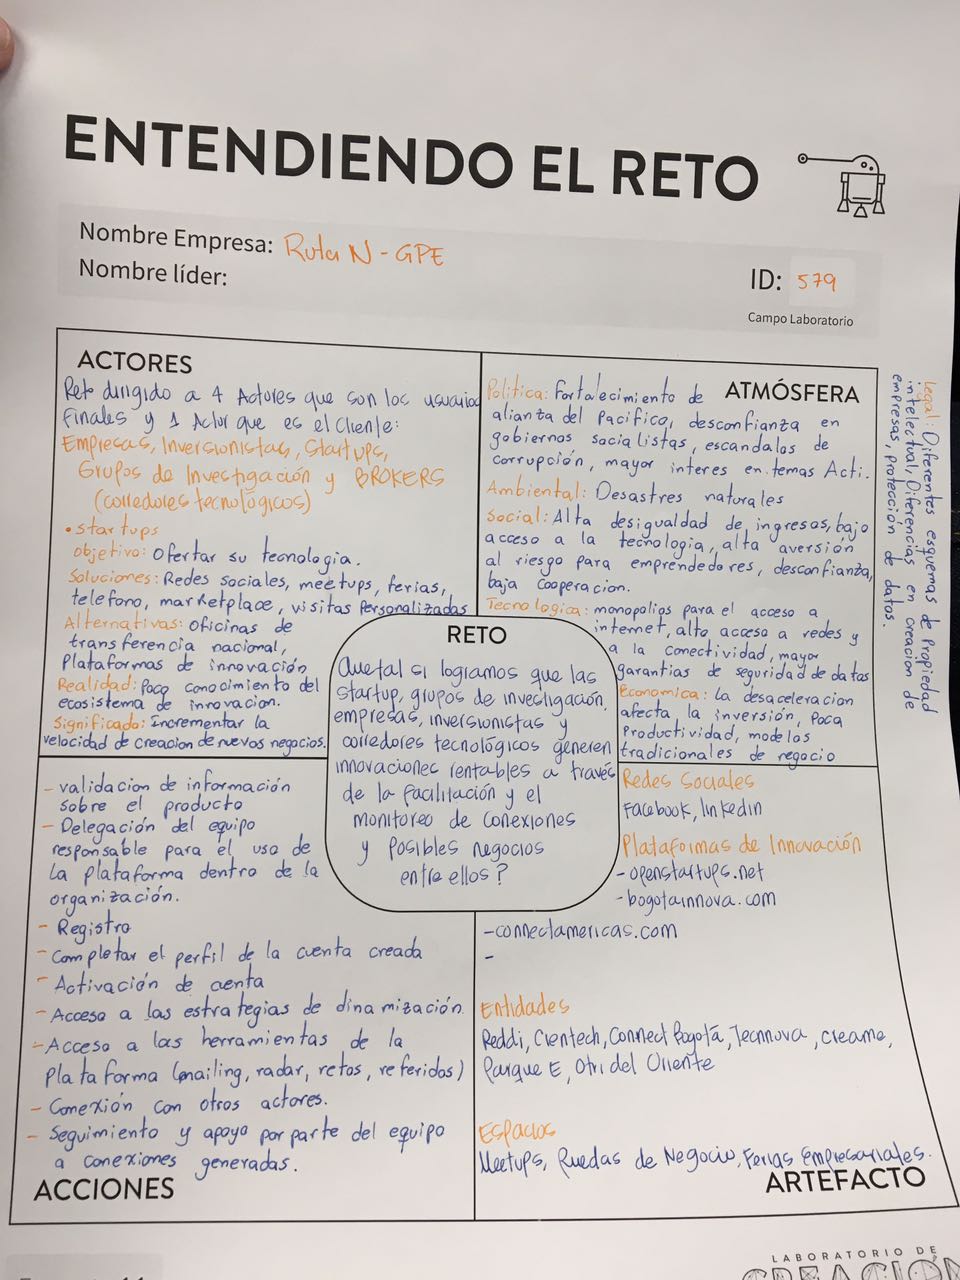 ENTENDIENDO EL RETO
Nombre Empresa: Ruta N - GPE
Nombre líder:
ID: 579
Campo Laboratorio
ACTORES
Reto dirigido a 4 Actores que son los usuarios
Finales y 1 Actor que es el Cliente:
Empresas, Inversionistas, Startups,
Grupos de Investigación y BROKERS
(corredores tecnológicos)
• startups
Objetivo: Ofertar su tecnología.
Soluciones: Redes sociales, meetups, ferias,
telefono, marketplace, visitas Personalizadas
Alternativas: Oficinas de
transferencia nacional,
Plataformas de innovación
Realidad: Poco conocimiento del
ecosistema de innovacion.
Significado: Incrementar la
velocidad de creacion de nuevos negocios.
ATMÓSFERA
Politica: Fortalecimiento de
alianza del Pacifico, desconfianza en
gobiernos socialistas, escandalos de
corrupción, mayor interes en temas Acti.
Ambiental: Desastres naturales
Social: Alta desigualdad de ingresos, bajo
acceso a la tecnología, alta aversión
al riesgo para emprendedores, desconfianza,
baja cooperacion.
Tecnologica: monopolios para el acceso a
internet, alto acceso a redes y
a la conectividad, mayor
garantias de seguridad de datos
Economica: la desaceleracion
afecta la inversión, Poca
Productividad, modelos
tradicionales de negocio
Legal: Diferentes esquemas de Propiedad
intelectual, Diferencias en creacion de
empresas, protección de datos.
RETO
Que tal si logramos que las
startup, grupos de investigación,
empresas, inversionistas y
corredores tecnológicos generen
innovaciones rentables a través
de la facilitación y el
monitoreo de conexiones
y posibles negocios
entre ellos?
- validacion de información
sobre el producto
- Delegación del equipo
responsable para el uso de
la plataforma dentro de la
organización.
- Registro
- Completar el perfil de la cuenta creada
- Activación de cuenta
- Acceso a las estrategias de dinamización
- Acceso a las herramientas de la
Plataforma (mailing, radar, retos, referidos)
- Conexión con otros actores.
- Seguimiento y apoyo por parte del equipo
a conexiones generadas.
ACCIONES
Redes Sociales
Facebook, linkedin
Plataformas de Innovación
- openstartups.net
- bogotainnova.com
- connectamericas.com
-
Entidades
Reddi, Cientech, Connect Bogotá, Tecnnova, Creame,
Parque E, Otri del Oriente
Espacios
Meetups, Ruedas de Negocio, Ferias Empresariales.
ARTEFACTO
LABORATORIO DE
CREACIÓN